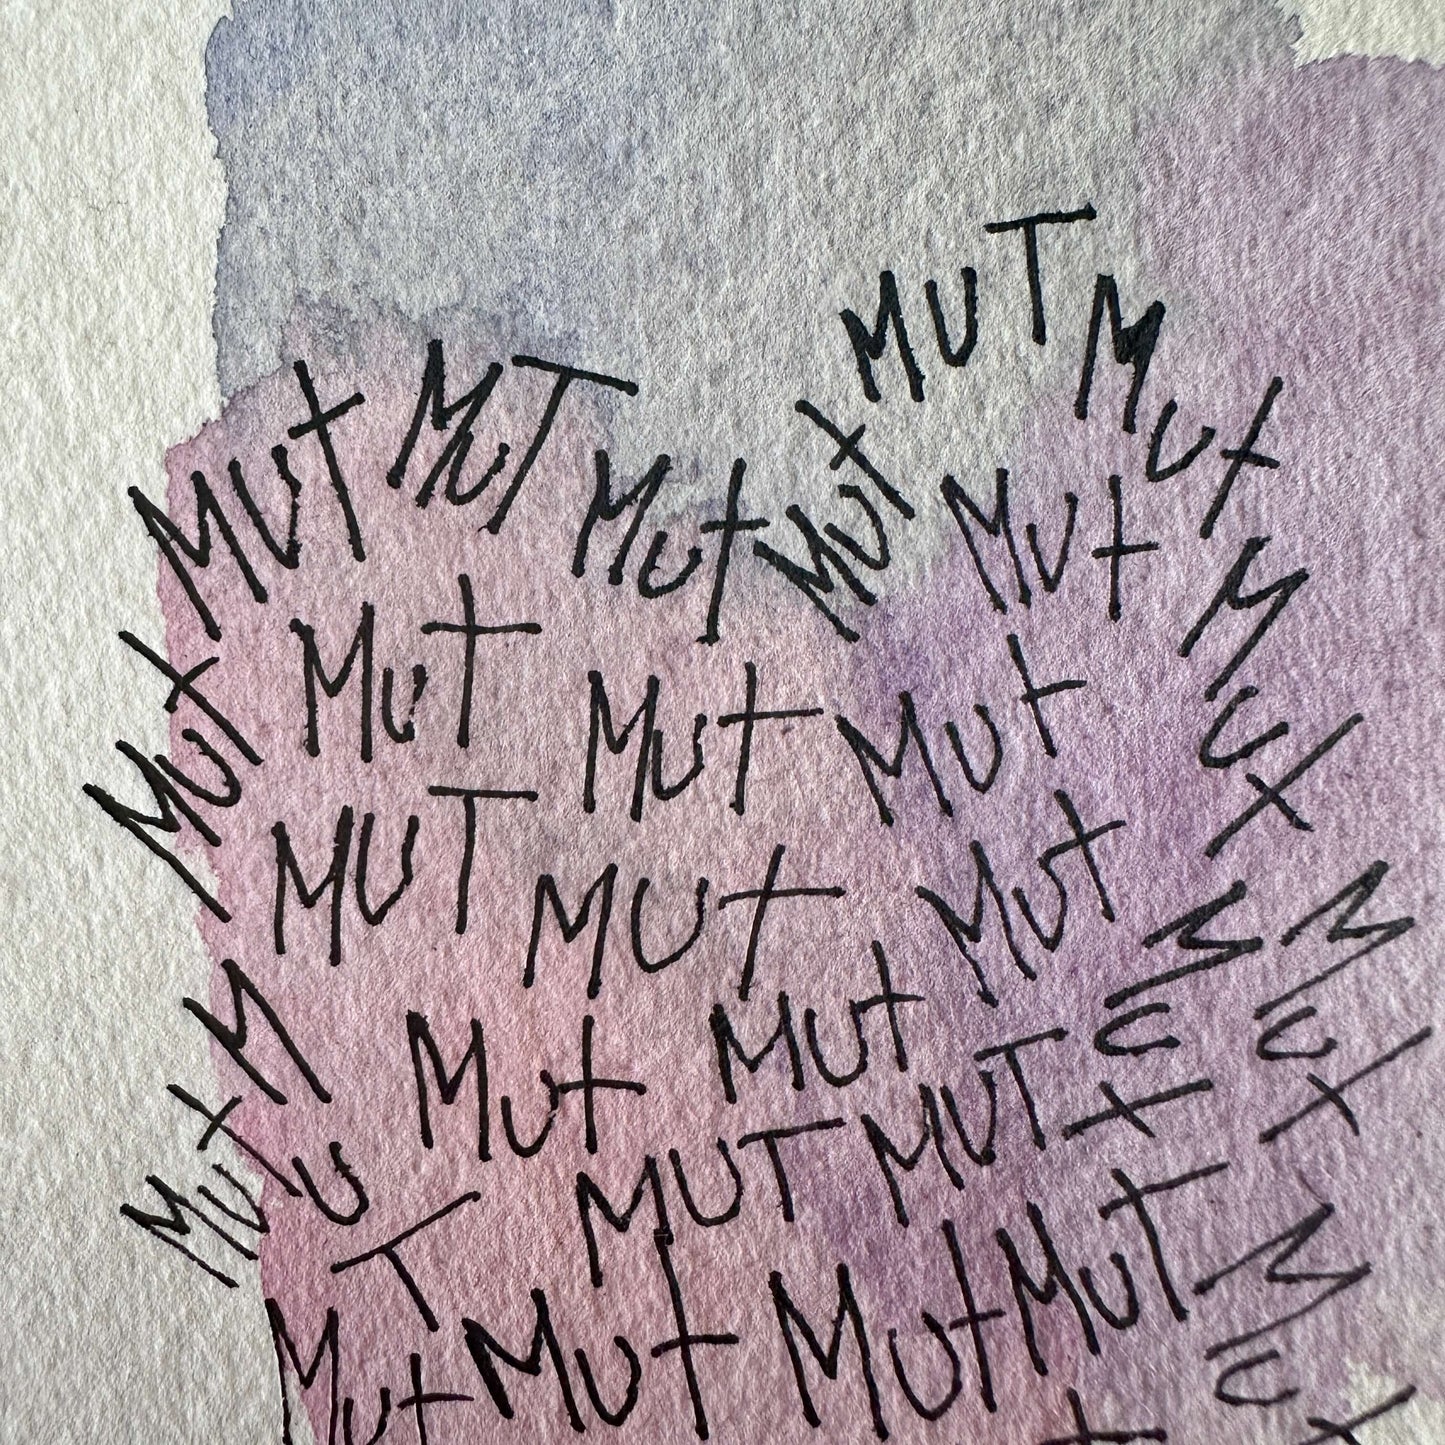 MUt MuT Mut Mut MUT Mut
Mut Mut
Mut Mut Mut Mut Mut
MUT MUt Mut Mut Mut
MuT Mut Mut
Mut MUT MUT
Mut Mut Mut MuT Mut